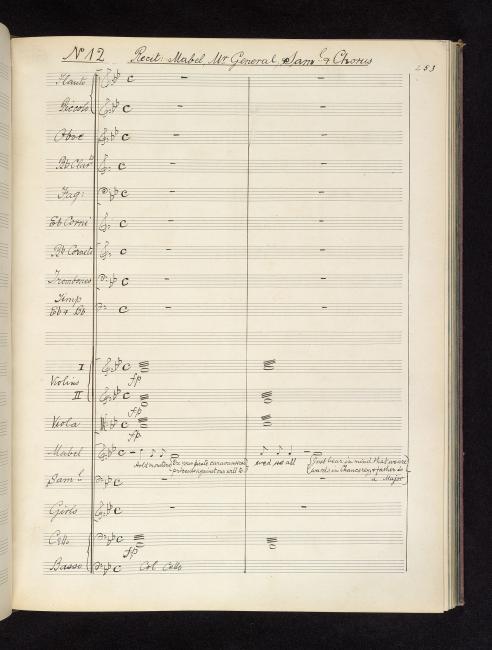 No 12 Recit: Mabel Mr General, Saml & Chorus
253
Flauto
Piccolo
Oboe
Bb Clarts
Fag:
Eb Corni
Bb Cornets
Trombones
Timp
Eb & Bb
I
Violins fp
II
fp
Viola
fp
Mabel
Hold monsters Ere your pirate caravanserai wed us all Just bear in mind that we are
proceeds against our will to wards in Chancery & father is
Saml a Major
Girls
Cello
fp
Basso Col Cello